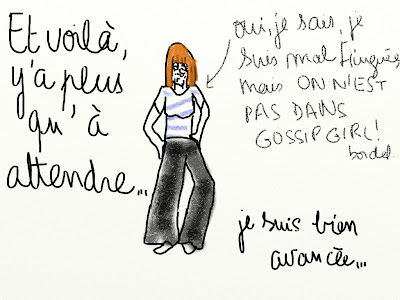 Et voilà,
y'a plus
qu'à
attendre...
oui, je sais, je
suis mal fringuée
mais ON N'EST
PAS DANS
GOSSIP GIRL!
bordel.
je suis bien
avancée...